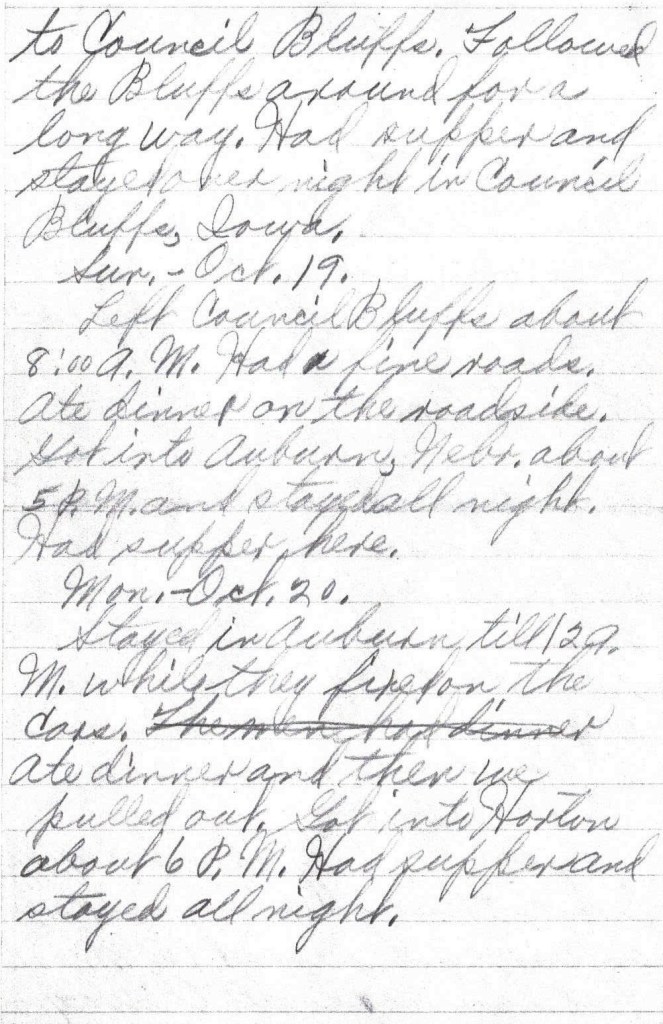 to Council Bluffs. Followed
the Bluffs around for a
long way. Had supper and
stayed over night in Council
Bluffs, Iowa.
Sun. - Oct. 19.
Left Council Bluffs about
8:00 A. M. Had fine roads.
Ate dinner on the roadside.
Got into Auburn, Nebr. about
5 P.M. and stayed all night.
Had supper here.
Mon. - Oct. 20.
Stayed in Auburn till 12 A.
M. while they fixed on the
cars. The men had dinner
Ate dinner and then we
pulled out. Got into Horton
about 6 P. M. Had supper and
stayed all night.